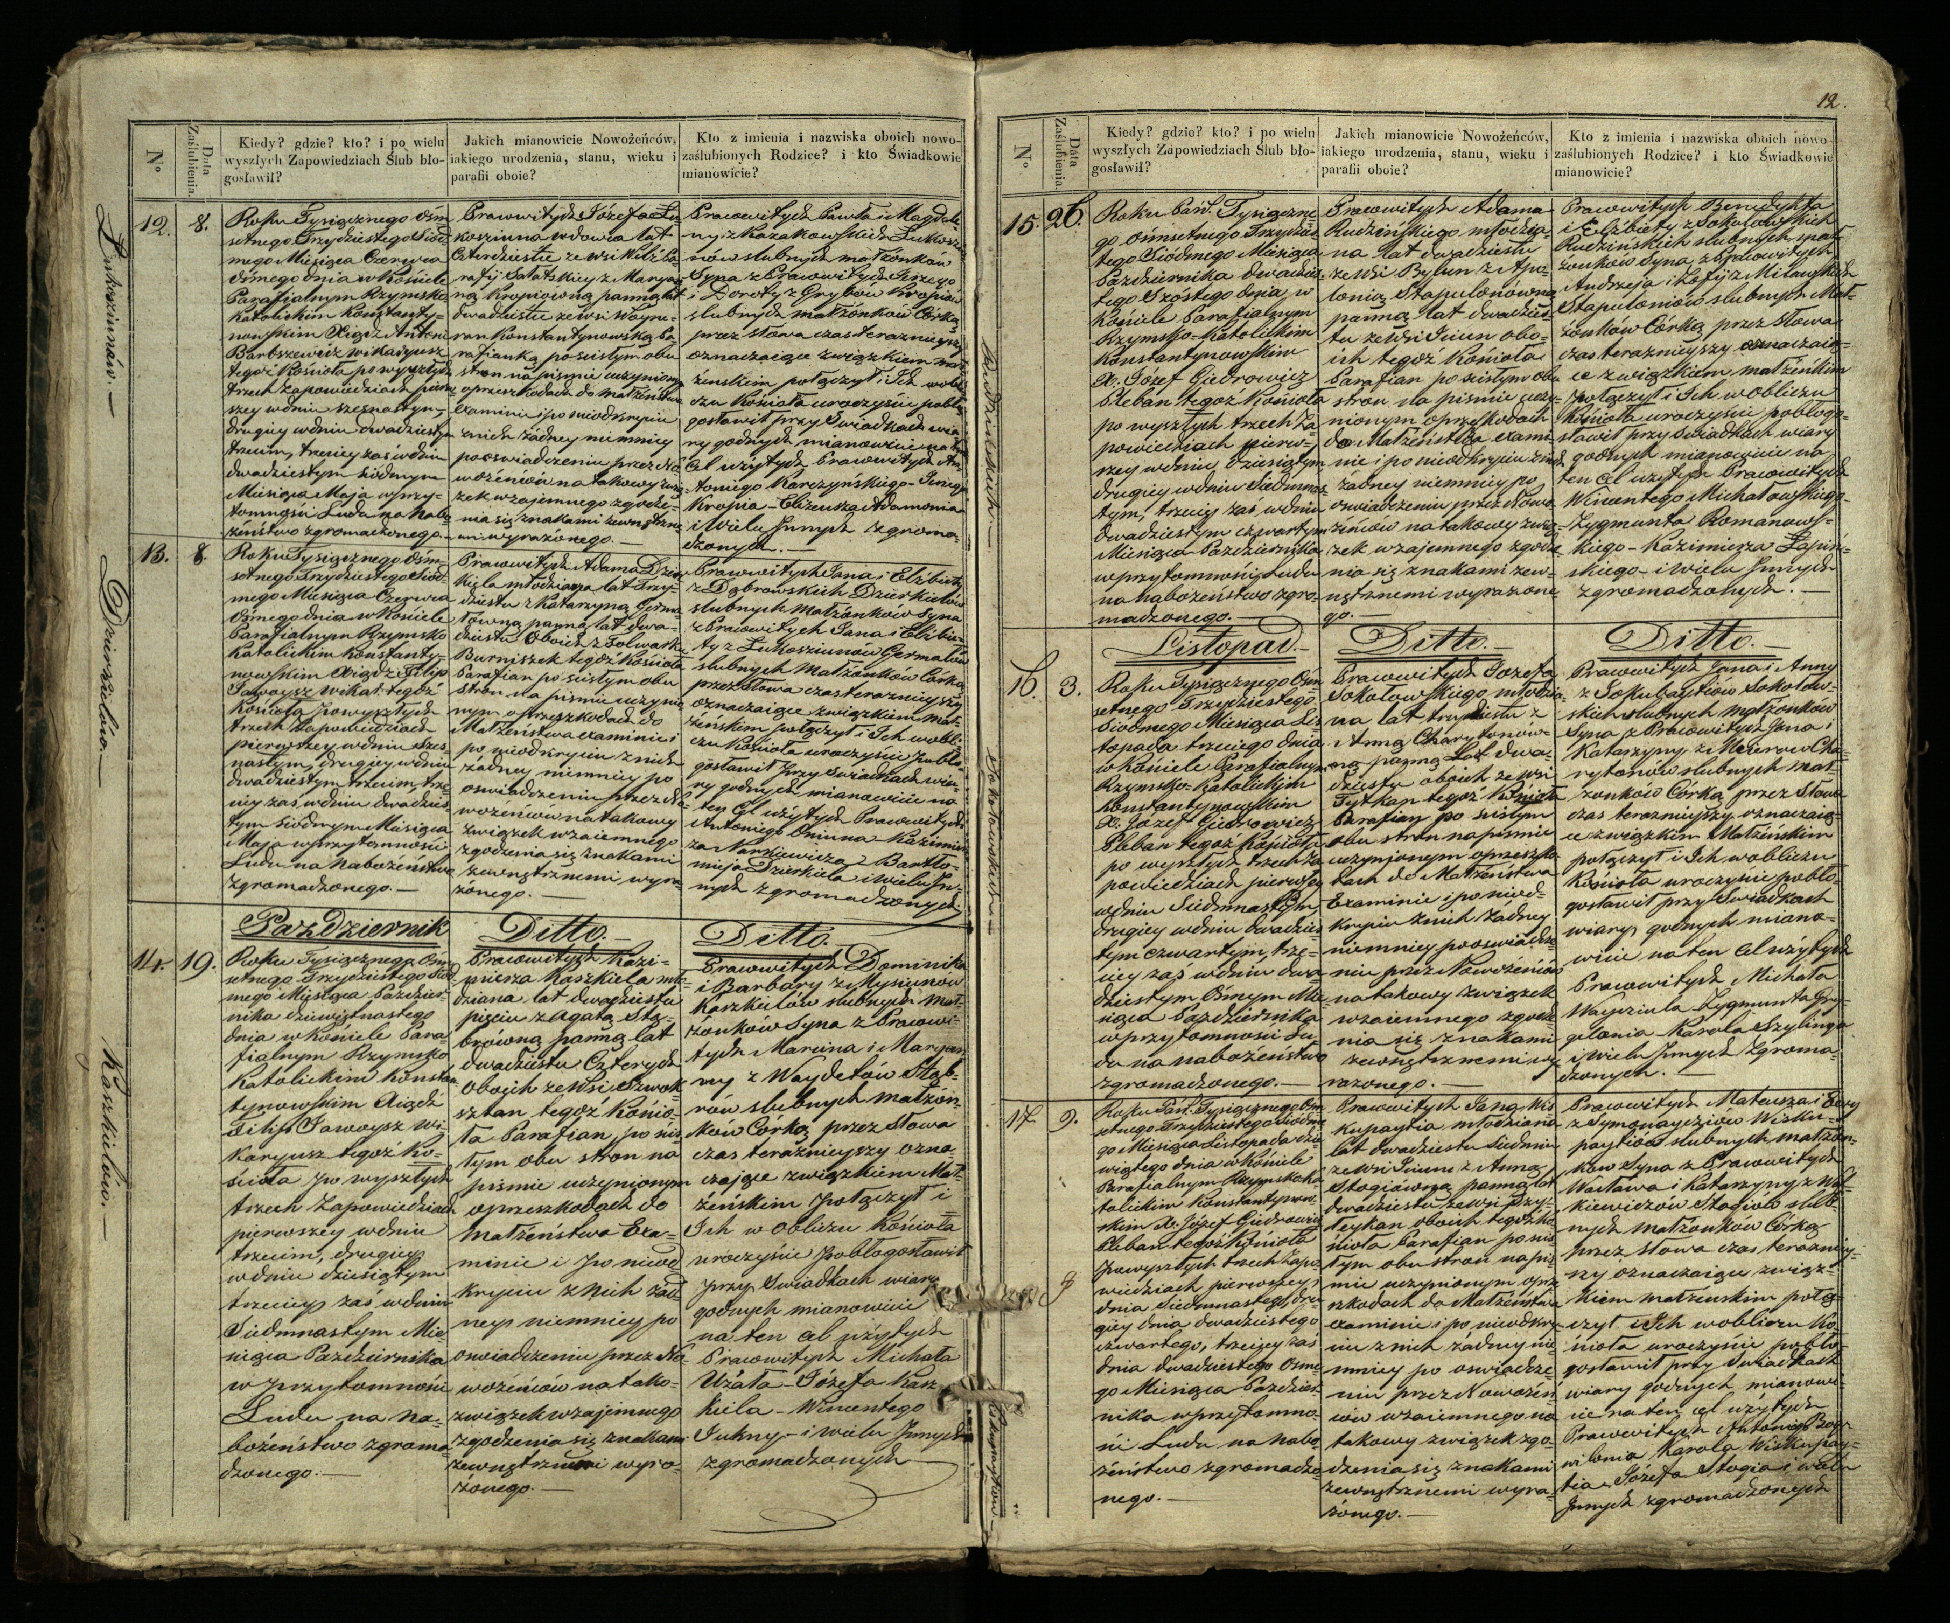 12.
N°
Data Zaślubienia.
Kiedy? gdzie? kto? i po wielu
wyszłych Zapowiedziach Ślub bło-
gosławił?
Jakich mianowicie Nowożeńców,
iakiego urodzenia, stanu, wieku i
parafii oboie?
Kto z imienia i nazwiska oboich nowo-
zaślubionych Rodzice? i kto Świadkowie
mianowicie?
12.
8.
Roku Tysiącznego Ośm
setnego Trzydziestego Siód
mego Miesiąca Czerwca
ósmego dnia w Kościele
Parafialnym Rzymsko
Katolickim Konstanty-
nowskim Xiądz Antoni
wikaryusz
tegoż Kościoła po wyszłych
trzech Zapowiedziach pierw
szey w dniu szesnastym
drugiey w dniu dwudziestym
trzecim, trzeciey zaś w dniu
dwudziestym siódmym
Miesiąca Maja w przy-
tomności Ludu na Nabo
żeństwo zgromadzonego.
Pracowitych Józefa Łu
koszuna wdowca lat
Czterdziestu ze wsi
rafii z Maryan
ną Kropiówną panną lat
dwadziestu ze wsi
ran Konstantynowską Pa
rafianką po ścisłym obu
stron na piśmie uczyniony
o przeszkodach do małżeństwa
Examinie i po nieodkryciu
z nich żadney niemniey
po oświadczeniu przez No
wożeńców na takowy zwią
zek wzajemnego zgodze
nia się znakami zewnętrzne
mi wyrażonego.
Pracowitych Pawła i Magdale
ny z Kazakowskich Łukoszu
nów ślubnych małżonków
Syna z Pracowitych Jerzego
i Doroty z Grybów Kropiów
ślubnych małżonków Córką
przez słowa czas teraznieyszy
oznaczające związkiem mał
żeńskim połączył i Ich w obli
czu Kościoła uroczyście pobło
gosławił przy Świadkach wia
ry godnych mianowicie na ten
cel użytych Pracowitych An
toniego Karczynskiego - Jerzego
Kropia - Elizeusza Adamonia
i Wielu Innych zgroma-
dzonych.
Łukoszunów.
13.
8.
Roku Tysiącznego Ośm
setnego Trzydziestego Siód
mego Miesiąca Czerwca
Ósmego dnia w Kościele
Parafialnym Rzymsko
Katolickim Konstanty-
nowskim Xiądz Filip
Jawoysz Wikar. tegoż
Kościoła po wyszłych
trzech Zapowiedziach
pierwszey w dniu Szes
nastym, drugiey w dniu
dwadziestym trzecim, trze
ciey zaś w dniu dwudzies
tym siódmym Miesiąca
Maja w przytomności
Ludu na Nabożeństwo
zgromadzonego.
Pracowitych Adama Dzier
kiela młodziana lat Trzy-
dziestu z Katarzyną Germa
tówną panną lat dwa
dziestu Oboich z Folwarku
Burniszek tegoż Kościoła
Parafian po ścisłym obu
Stron na piśmie uczynio
nym o przeszkodach do
Małżeństwa examinie i
po nieodkryciu z nich
żadney niemniey po
oświadczeniu przez No
wożeńców na takowy
związek wzaiemnego
zgodzenia się znakami
zewnętrznemi wyra
żonego.
Pracowitych Jana i Elżbiety
z Dąbrowskich Dzierkielów
ślubnych Małżonków Syna
z Pracowitych Jana i Elżbie
ty z Łukoszunów Germatów
ślubnych Małżonków Córką
przez Słowa czas teraznieyszy
oznaczaiące związkiem mał-
żeńskim połączył i Ich w obli-
czu Kościoła uroczyście pobło
gosławił przy Świadkach wia-
ry godnych mianowicie na
ten cel użytych Pracowitych
Antoniego Kazimie
rza Narkiewicza i Bartło-
mieja Dzierkiela i Wielu In-
nych zgromadzonych.
Dzierkielów.
Październik
Ditto.
Ditto.
14.
19.
Roku Tysiącznego Ośm
setnego Trzydziestego Siód
mego Miesiąca Paździer
nika dziewiętnastego
dnia w Kościele Para-
fialnym Rzymsko
Katolickim Konstan
tynowskim Xiądz
Filip Jawoysz Wi
karyusz tegoż Ko-
ścioła po wyszłych
trzech Zapowiedziach
pierwszey w dniu
trzecim, drugiey
w dniu dziesiątym
trzeciey zaś w dniu
Siedmnastym Mie
siąca Października
w przytomności
Ludu na Na-
bożeństwo zgroma
dzonego.
Pracowitych Kazi-
mierza Kaszkiela mło
dziana lat dwadziestu
pięciu z Agatą Sła-
brówną panną lat
dwadziestu Czterych
Oboich ze wsi Szwak
sztan tegoż Kościo-
ła Parafian po ścis
łym obu stron na
piśmie uczynionym
o przeszkodach do
Małżeństwa Exa-
minie i po nieod
kryciu z nich żad
ney niemniey po
oświadczeniu przez No
wożeńców na tako-
związek wzajemnego
zgodzenia się znakami
zewnętrznemi wyra-
żonego.
Pracowitych Dominika
i Barbary z Mysiunów
Kaszkielów ślubnych Mał
żonków Syna z Pracowi-
tych Marcina i Maryan
ny z Waydelów Słab-
rów ślubnych małżon
ków Córką przez Słowa
czas teraznieyszy ozna
czające związkiem Mał
żeńskim połączył i
Ich w Obliczu Kościoła
uroczyście pobłogosławił
przy Świadkach wiary
godnych mianowicie
na ten cel użytych
Pracowitych Michała
Użała - Józefa Kasz
kiela - Wincentego
Jukny - i wielu Innych
zgromadzonych
Kaszkielów.
N°
Data Zaślubienia
Kiedy? gdzie? kto? i po wielu
wyszłych Zapowiedziach Ślub bło-
gosławił?
Jakich mianowicie Nowożeńców,
iakiego urodzenia, stanu, wieku i
parafii oboie?
Kto z imienia i nazwiska oboich nowo-
zaślubionych Rodzice? i kto Świadkowie
mianowicie?
15.
26.
Roku Pańs. Tysiączne
go Ośmsetnego Trzydzies
tego Siódmego Miesiąca
Października dwudzies
tego Szóstego dnia w
Kościele Parafialnym
Rzymsko-Katolickim
Konstantynowskim
X. Józef Giedrowicz
Pleban tegoż Kościoła
po wyszłych trzech Za
powiedziach pierw-
szey w dniu dziesiątym
drugiey w dniu Siedmnas
tym, trzeciey zaś w dniu
dwadziestym czwartym
Miesiąca Października
w przytomności Ludu
na nabożeństwo zgro-
madzonego.
Pracowitych Adama
Rudzińskiego młodzia-
na lat dwadziestu
ze wsi z Apo-
lonią Stapulonówną
panną lat dwadzies
tu ze wsi obo-
ich tegoż Kościoła
Parafian po ścisłym obu
stron na piśmie uczy-
nionym o przeszkodach
do Małżeństwa exami
nie i po nieodkryciu z nich
żadney niemniey po
oświadczeniu przez Nowo
żeńców na takowy zwią-
zek wzajemnego zgodze
nia się znakami zew-
nętrznemi wyrażone
go.
Pracowitych Benedykta
i Elżbiety z Sokołowskich
Rudzińskich ślubnych mał
żonków Syna, z Pracowitych
Andrzeja i Zofij z Milewskich
Stapulonów ślubnych Mał-
żonków Córką przez słowa
czas teraznieyszy oznaczaią-
ce związkiem małżeńskim
połączył i Ich w obliczu
Kościoła uroczyście pobłogo-
sławił przy świadkach wiary
godnych mianowicie na
ten cel użytych Pracowitych
Wincentego Michałowskiego-
Zygmunta Romanows-
kiego - Kazimierza Łapin-
skiego - i Wielu Innych
zgromadzonych.
Rudzińskich.
Listopad.
Ditto.
Ditto.
16.
3.
Roku Tysiącznego Ośm
setnego Trzydziestego
Siódmego Miesiąca Lis
topada trzeciego dnia
w Kościele Parafialnym
Rzymsko-Katolickim
Konstantynowskim
X. Józef Giedrowicz
Pleban tegoż Kościoła
po wyszłych trzech Za
powiedziach pierwszey
w dniu Siedmnastym
drugiey w dniu dwudzies
tym czwartym, trze-
ciey zaś w dniu dwa
dziestym Ósmym Mie
siąca Października
w przytomności Lu-
du na nabożeństwo
zgromadzonego.
Pracowitych Józefa
Sokołowskiego młodzia
na lat trzydziestu z
Anną Charytonów-
ną panną Lat dwa-
dziestu oboich ze wsi
tegoż Kościoła
Parafian po ścisłym
obu stron na piśmie
uczynionym o przeszko
dach do Małżeństwa
Examinie i po nieod-
kryciu z nich żadney
niemniey po oświadcze
niu przez Nowożeńców
na takowy związek
wzaiemnego zgodze
nia się znakami
zewnętrznemi wy
rażonego.
Pracowitych Jana i Anny
Sokołow-
skich ślubnych małżonków
Syna z Pracowitych Jana i
Katarzyny z Cha-
rytonów ślubnych mał-
żonków Córką przez Słowa
czas teraznieyszy oznaczaią-
ce związkiem Małżeńskim
połączył i Ich w obliczu
Kościoła uroczyście pobło-
gosławił przy Świadkach
wiary godnych miano-
wicie na ten cel użytych
Pracowitych Michała
Zygmunta Gry-
gelania - Karola Szylinga
i wielu Innych zgroma-
dzonych.
Sokołowskich.
17.
9.
Roku Pańs. Tysiącznego Ośm
setnego Trzydziestego Siódme
go Miesiąca Listopada dzie
wiątego dnia w Kościele
Parafialnym Rzymsko Ka
tolickim Konstantynow-
skim X. Józef Giedrowicz
Pleban tegoż Kościoła
po wyszłych trzech Zapo
wiedziach pierwszey
dnia Siedmnastego, dru
giey dnia dwudziestego
czwartego, trzeciey zaś
dnia dwudziestego Ósme
go Miesiąca Paździer-
nika w przytomno-
ści Ludu na Nabo
żeństwo zgromadzo-
nego.
Pracowitych Jana Wis
kupaytia młodziana
lat dwadziestu Siedmiu
ze wsi z Anną
Stagiówną panną lat
dwadziestu ze wsi
oboich tegoż Ko
ścioła Parafian po ścis
łym obu stron na piś
mie uczynionym o prze
szkodach do Małżeństwa
examinie i po nieodkry
ciu z nich żadney nie
mniey po oświadcze-
niu przez Nowożeń
ców wzaiemnego na
takowy związek zgo-
dzenia się znakami
zewnętrznemi wyra-
żonego.
Pracowitych Mateusza i Ewy
z Wisku-
paytiów ślubnych małżon-
ków Syna z Pracowitych
Wacława i Katarzyny z
Stagiów ślub-
nych małżonków Córką
przez słowa czas tera zniey-
szy oznaczaiące związ-
kiem małżeńskim połą-
czył i Ich w obliczu Ko-
ścioła uroczyście pobło-
gosławił przy Świadkach
wiary godnych mianowi-
cie na ten cel użytych
Pracowitych Antoniego
Karola Wiskupay-
tia Józefa Stagia i wielu
Innych zgromadzonych